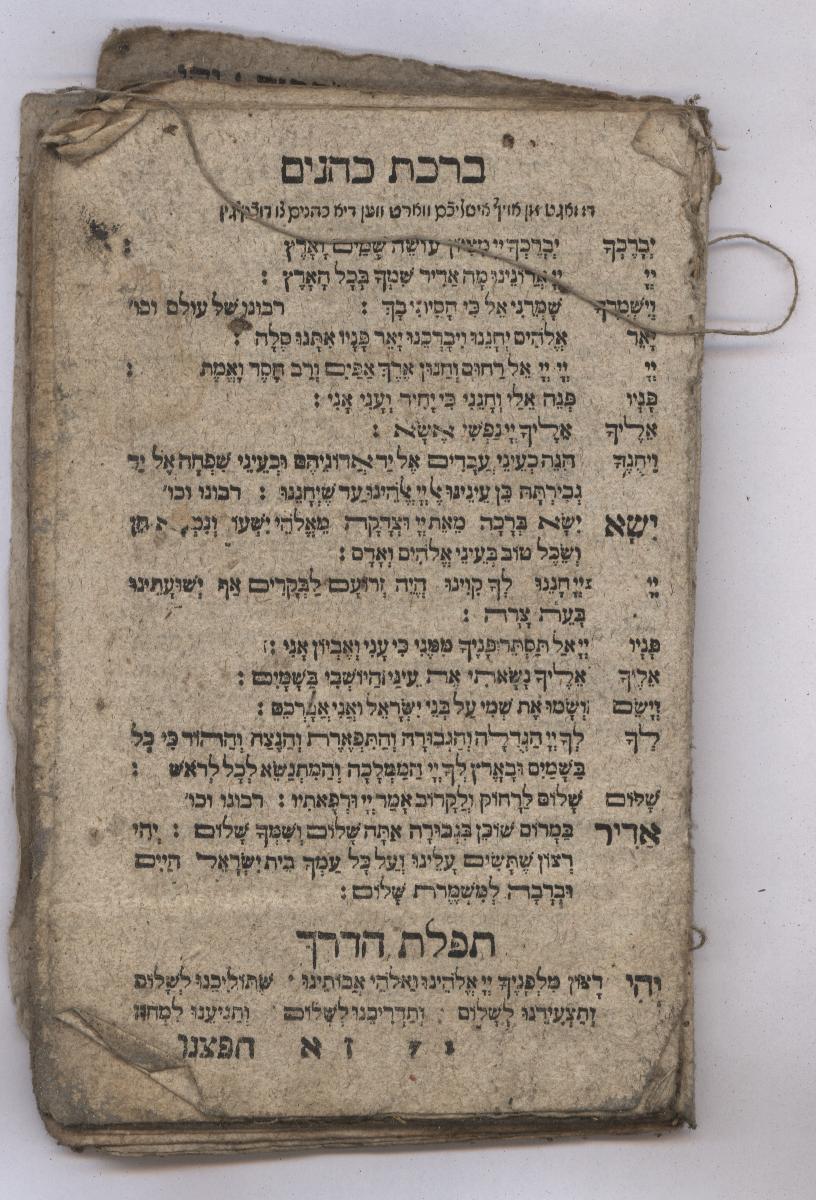 ברכת כהנים
דז זאגט מן אויף איטליכס ווארט ווען דיא כהנים
יְבָרֶכְךָ יְבָרֶכְךָ יְיָ מִצִּיּוֹן עוֹשֵׂה שָׁמַיִם וָאָרֶץ :
יְיָ יְיָ אֲדוֹנֵינוּ מָה אַדִּיר שִׁמְךָ בְּכָל הָאָרֶץ :
וְיִשְׁמְרֶךָ שָׁמְרֵנִי אֵל כִּי חָסִיתִי בָךְ : רבונו של עולם וכו'
יָאֵר אֱלֹהִים יְחָנֵּנוּ וִיבָרְכֵנוּ יָאֵר פָּנָיו אִתָּנוּ סֶלָה :
יְיָ יְיָ יְיָ אֵל רַחוּם וְחַנּוּן אֶרֶךְ אַפַּיִם וְרַב חֶסֶד וֶאֱמֶת :
פָּנָיו פְּנֵה אֵלַי וְחָנֵּנִי כִּי יָחִיד וְעָנִי אָנִי :
אֵלֶיךָ אֵלֶיךָ יְיָ נַפְשִׁי אֶשָּׂא :
וִיחֻנֶּךָּ הִנֵּה כְעֵינֵי עֲבָדִים אֶל יַד אֲדוֹנֵיהֶם וּכְעֵינֵי שִׁפְחָה אֶל יַד
גְּבִירְתָּהּ כֵּן עֵינֵינוּ אֶל יְיָ אֱלֹהֵינוּ עַד שֶׁיְּחָנֵּנוּ : רבונו וכו'
יִשָּׂא יִשָּׂא בְרָכָה מֵאֵת יְיָ וּצְדָקָה מֵאֱלֹהֵי יִשְׁעוֹ חֵן
וְשֵׂכֶל טוֹב בְּעֵינֵי אֱלֹהִים וְאָדָם :
יְיָ יְיָ חָנֵּנוּ לְךָ קִוִּינוּ הֱיֵה זְרוֹעָם לַבְּקָרִים אַף יְשׁוּעָתֵינוּ
בְּעֵת צָרָה :
פָּנָיו יְיָ אַל תַּסְתֵּר פָּנֶיךָ מִמֶּנִּי כִּי עָנִי וְאֶבְיוֹן אָנִי :
אֵלֶיךָ אֵלֶיךָ נָשָׂאתִי אֶת עֵינַי הַיּוֹשְׁבִי בַּשָּׁמָיִם :
וְיָשֵׂם וְשָׂמוּ אֶת שְׁמִי עַל בְּנֵי יִשְׂרָאֵל וַאֲנִי אֲבָרְכֵם :
לְךָ לְךָ יְיָ הַגְּדֻלָּה וְהַגְּבוּרָה וְהַתִּפְאֶרֶת וְהַנֵּצַח וְהַהוֹד כִּי כָל
בַּשָּׁמַיִם וּבָאָרֶץ לְךָ יְיָ הַמַּמְלָכָה וְהַמִּתְנַשֵּׂא לְכָל לְרֹאשׁ :
שָׁלוֹם שָׁלוֹם לָרָחוֹק וְלַקָּרוֹב אָמַר יְיָ וּרְפָאתִיו : רבונו וכו'
אַדִּיר בַּמָּרוֹם שׁוֹכֵן בִּגְבוּרָה אַתָּה שָׁלוֹם וְשִׁמְךָ שָׁלוֹם : יְהִי
רָצוֹן שֶׁתָּשִׂים עָלֵינוּ וְעַל כָּל עַמְּךָ בֵּית יִשְׂרָאֵל חַיִּים
וּבְרָכָה לְמִשְׁמֶרֶת שָׁלוֹם :
תפלת הדרך
וִיהִי רָצוֹן מִלְּפָנֶיךָ יְיָ אֱלֹהֵינוּ וֵאלֹהֵי אֲבוֹתֵינוּ שֶׁתּוֹלִיכֵנוּ לְשָׁלוֹם
וְתַצְעִידֵנוּ לְשָׁלוֹם וְתַדְרִיכֵנוּ לְשָׁלוֹם וְתַגִּיעֵנוּ לִמְחוֹז
חפצנו